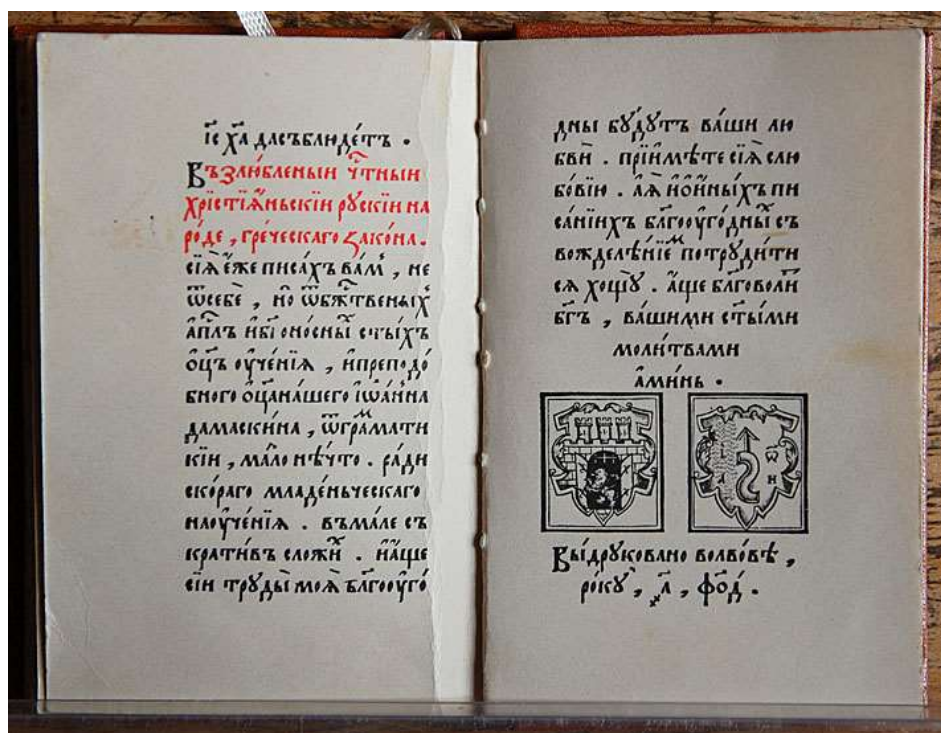 і҃с х҃а дасъблюде́тъ .
Възлю́бленыи ч҃тныи
хрїстїа́ньскїи рускїи на
ро́де , гре́ческаго зако́на .
сїѧ̀ е́же писа́хъ ва́мъ , не
ѿсебѐ , но̀ ѿбж҃твеныхъ
а҆пл҃ъ и҆бг҃оно́сныхъ ст҃ы́хъ
ѻ҆ц҃ъ ѹ҆че́нїѧ , и҆преподо́
бного ѻ҆ц҃ана́шего і҆ѡа́нна
дамаски́на , ѿгра́мати
кїи , ма́ло нѣ́что . ра́ди
ско́раго младе́ньческаго
наѹче́нїѧ . въма́ле съ
крати́въ сложи́х . и҆а҆́ще
сїи труды̀ моѧ̀ бл҃гоѹго́
дны бу́дутъ ва́ши лю
бвѝ . прїимѣ́те сїѧ̀ слю
бо́вїю . а҆ѧ̀ и҆ѻ҆и́ныхъ пи
са́нїихъ бл҃гоѹго́дныхъ съ
вожделѣ́нїемъ потруди́ти
сѧ хощу̀ . а҆́ще бл҃говоли́тъ
бг҃ъ , ва́шими ст҃ы́ми
моли́твами
а҆ми́нь .
І ѡ
А Н
Вы́друковано волво́вѣ ,
ро́ку , ҂а҃ , фо҃д .